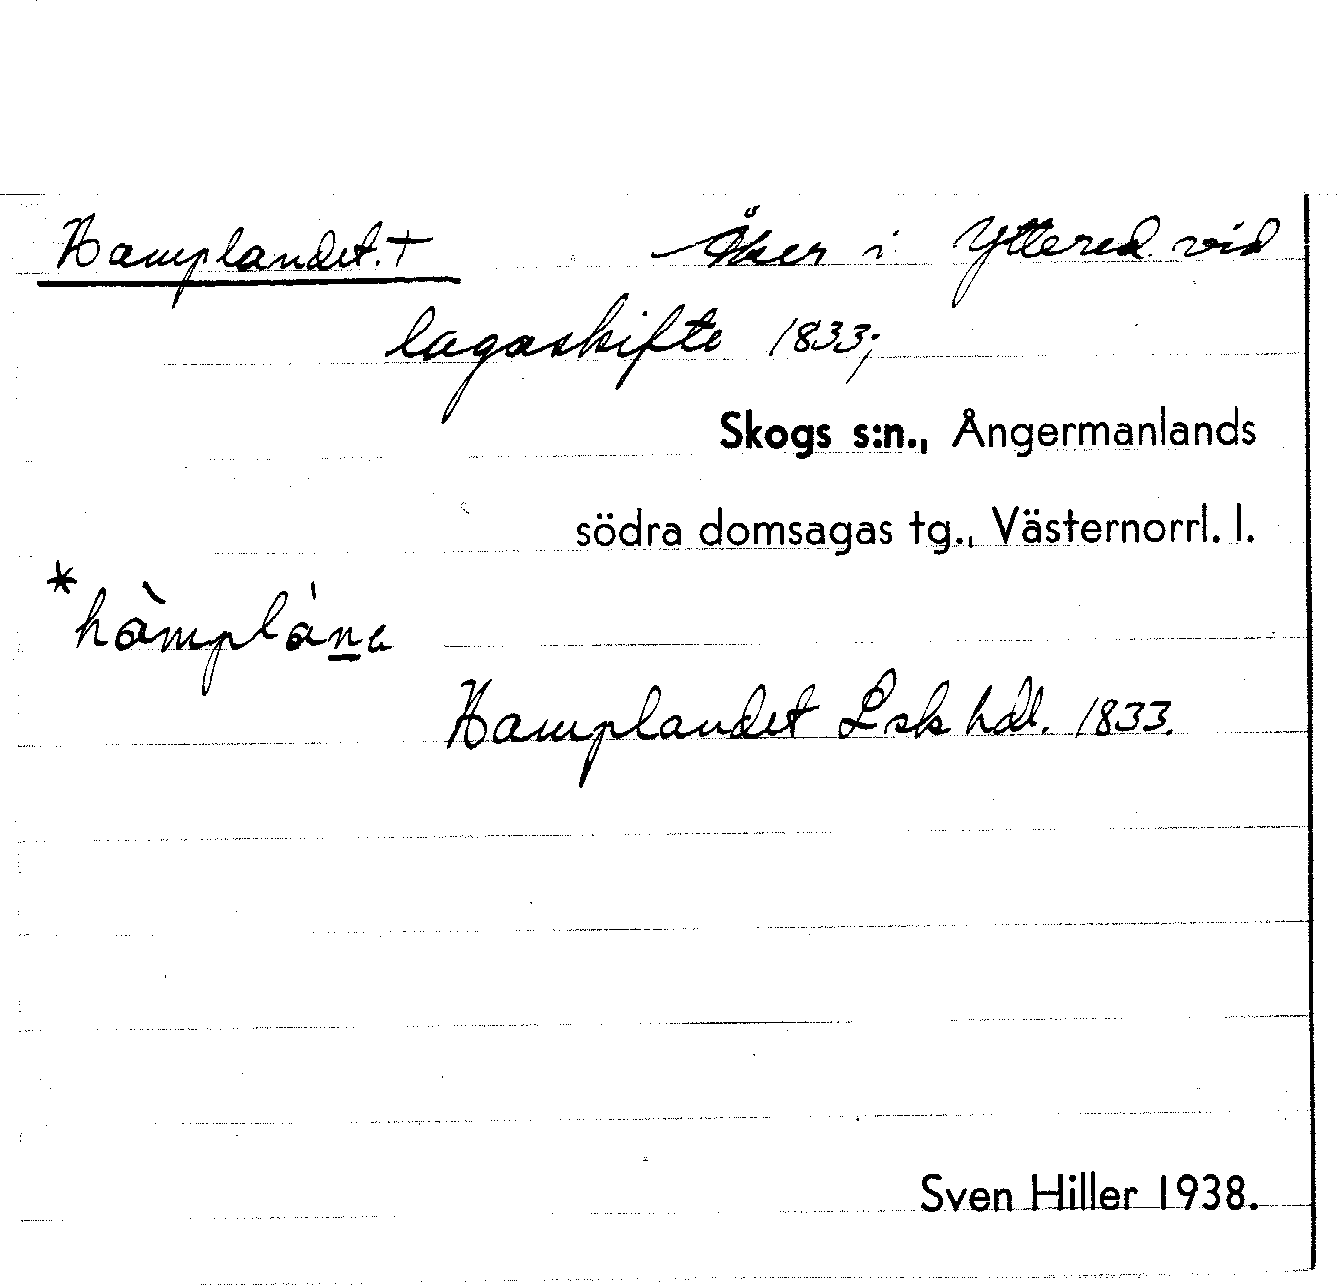 Hamplandet. † Åker i Yttered vid
lagaskifte 1833;
Skogs s:n., Ångermanlands
södra domsagas tg., Västernorrl. l.
*hàmplána
Hamplandet Lsk hdl. 1833.
Sven Hiller 1938.